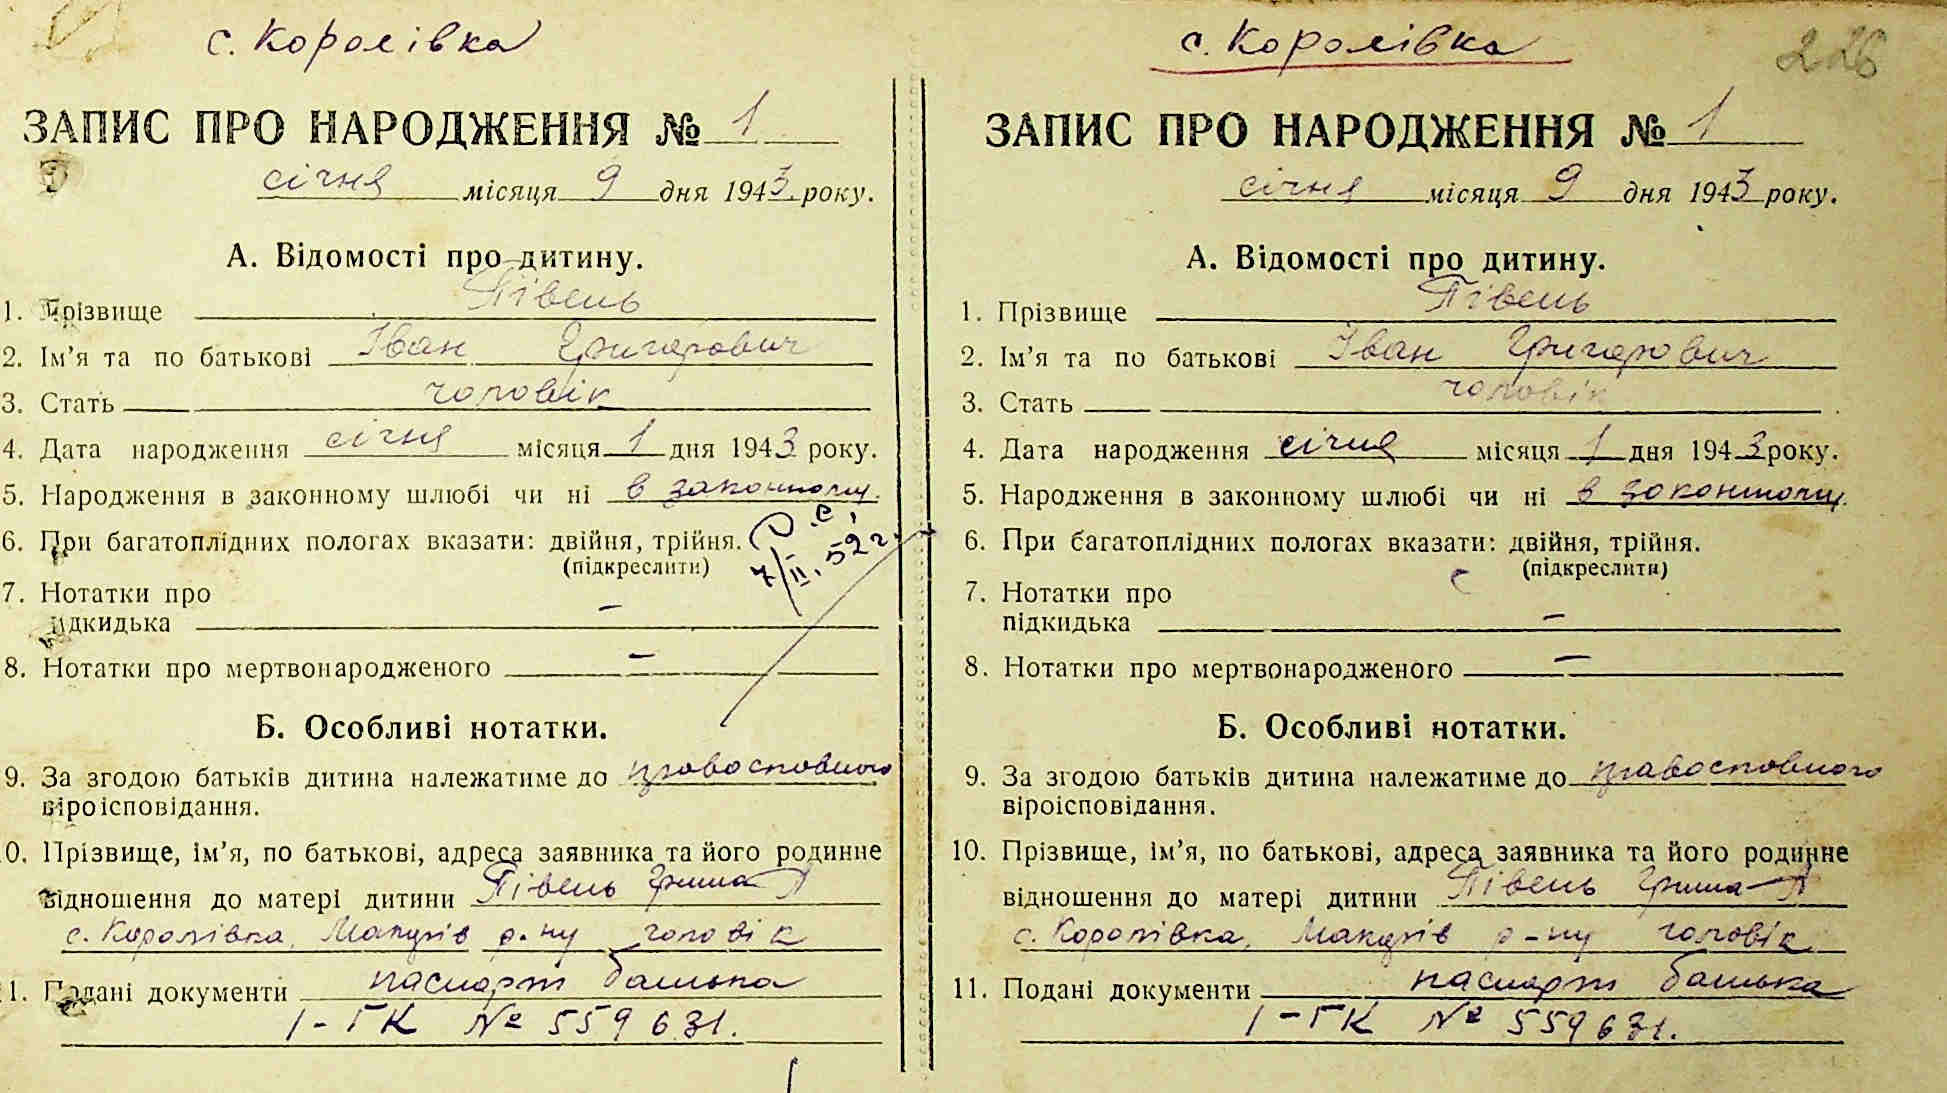 с. Королівка
ЗАПИС ПРО НАРОДЖЕННЯ № 1
січня місяця 9 дня 1943 року.
А. Відомості про дитину.
1. Прізвище Півень
2. Ім'я та по батькові Іван Григорович
3. Стать чоловік
4. Дата народження січня місяця 1 дня 1943 року.
5. Народження в законному шлюбі чи ні в законному.
6. При багатоплідних пологах вказати: двійня, трійня.
(підкреслити)
7/II. 52 г.
7. Нотатки про
підкидька —
8. Нотатки про мертвонародженого —
Б. Особливі нотатки.
9. За згодою батьків дитина належатиме до православного
віроісповідання.
10. Прізвище, ім'я, по батькові, адреса заявника та його родинне
відношення до матері дитини Півень Гриша
с. Королівка, Макарів р-ну чоловік
11. Подані документи паспорт батька
I-ГК № 559631.
с. Королівка
226
ЗАПИС ПРО НАРОДЖЕННЯ № 1
січня місяця 9 дня 1943 року.
А. Відомості про дитину.
1. Прізвище Півень
2. Ім'я та по батькові Іван Григорович
3. Стать чоловік
4. Дата народження січня місяця 1 дня 1943 року.
5. Народження в законному шлюбі чи ні в законному.
6. При багатоплідних пологах вказати: двійня, трійня.
(підкреслити)
7. Нотатки про
підкидька —
8. Нотатки про мертвонародженого —
Б. Особливі нотатки.
9. За згодою батьків дитина належатиме до православного
віроісповідання.
10. Прізвище, ім'я, по батькові, адреса заявника та його родинне
відношення до матері дитини Півень Гриша
с. Королівка, Макарів р-ну чоловік
11. Подані документи паспорт батька
I-ГК № 559631.